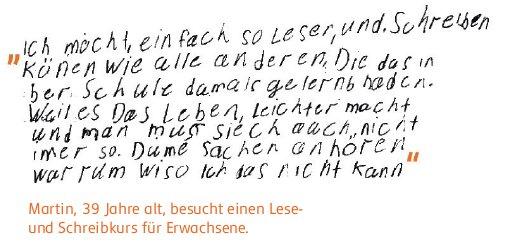 "Ich möcht, einfach so Leser, und. Schreiben
Könen wie alle anderen, Die das in
ber. Schule damals gelernb haben.
Wail es Das Leben, Leichter macht
und man muss siech auch, nicht
imer so. Dume Sachen anhören
warrum wiso Ich das nicht kann"
Martin, 39 Jahre alt, besucht einen Lese-
und Schreibkurs für Erwachsene.